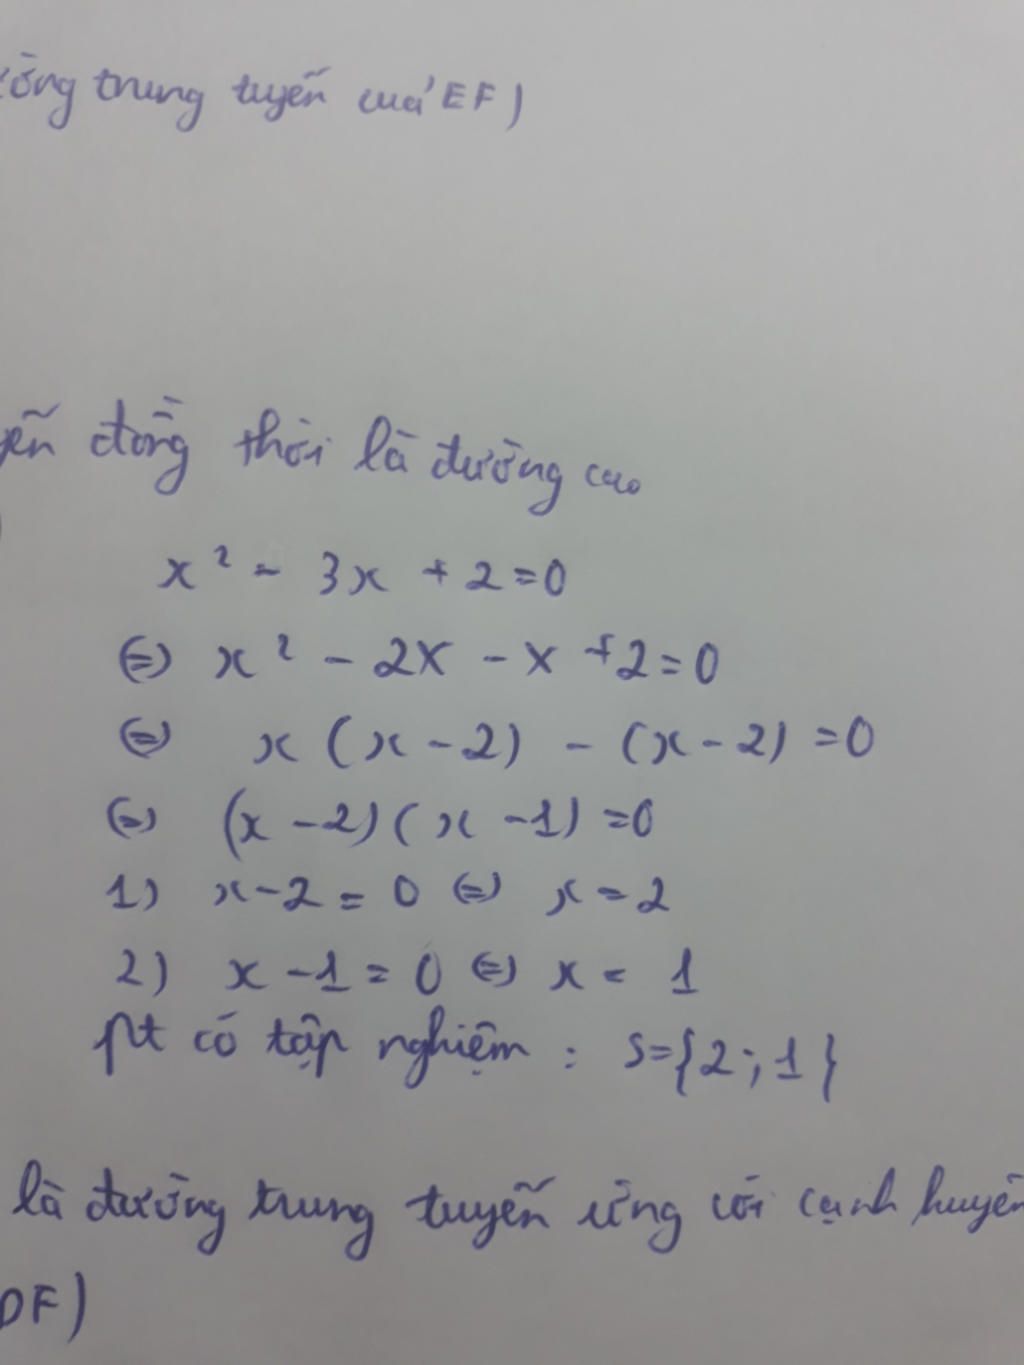 trung tuyến của EF)
đồng thời là đường cao
x² - 3x + 2 = 0
(=) x² - 2x - x + 2 = 0
(=) x (x - 2) - (x - 2) = 0
(=) (x - 2) ( x - 1) = 0
1) x - 2 = 0 (=) x = 2
2) x - 1 = 0 (=) x = 1
pt có tập nghiệm : S = {2 ; 1}
là đường trung tuyến ứng với cạnh huyền
DF)